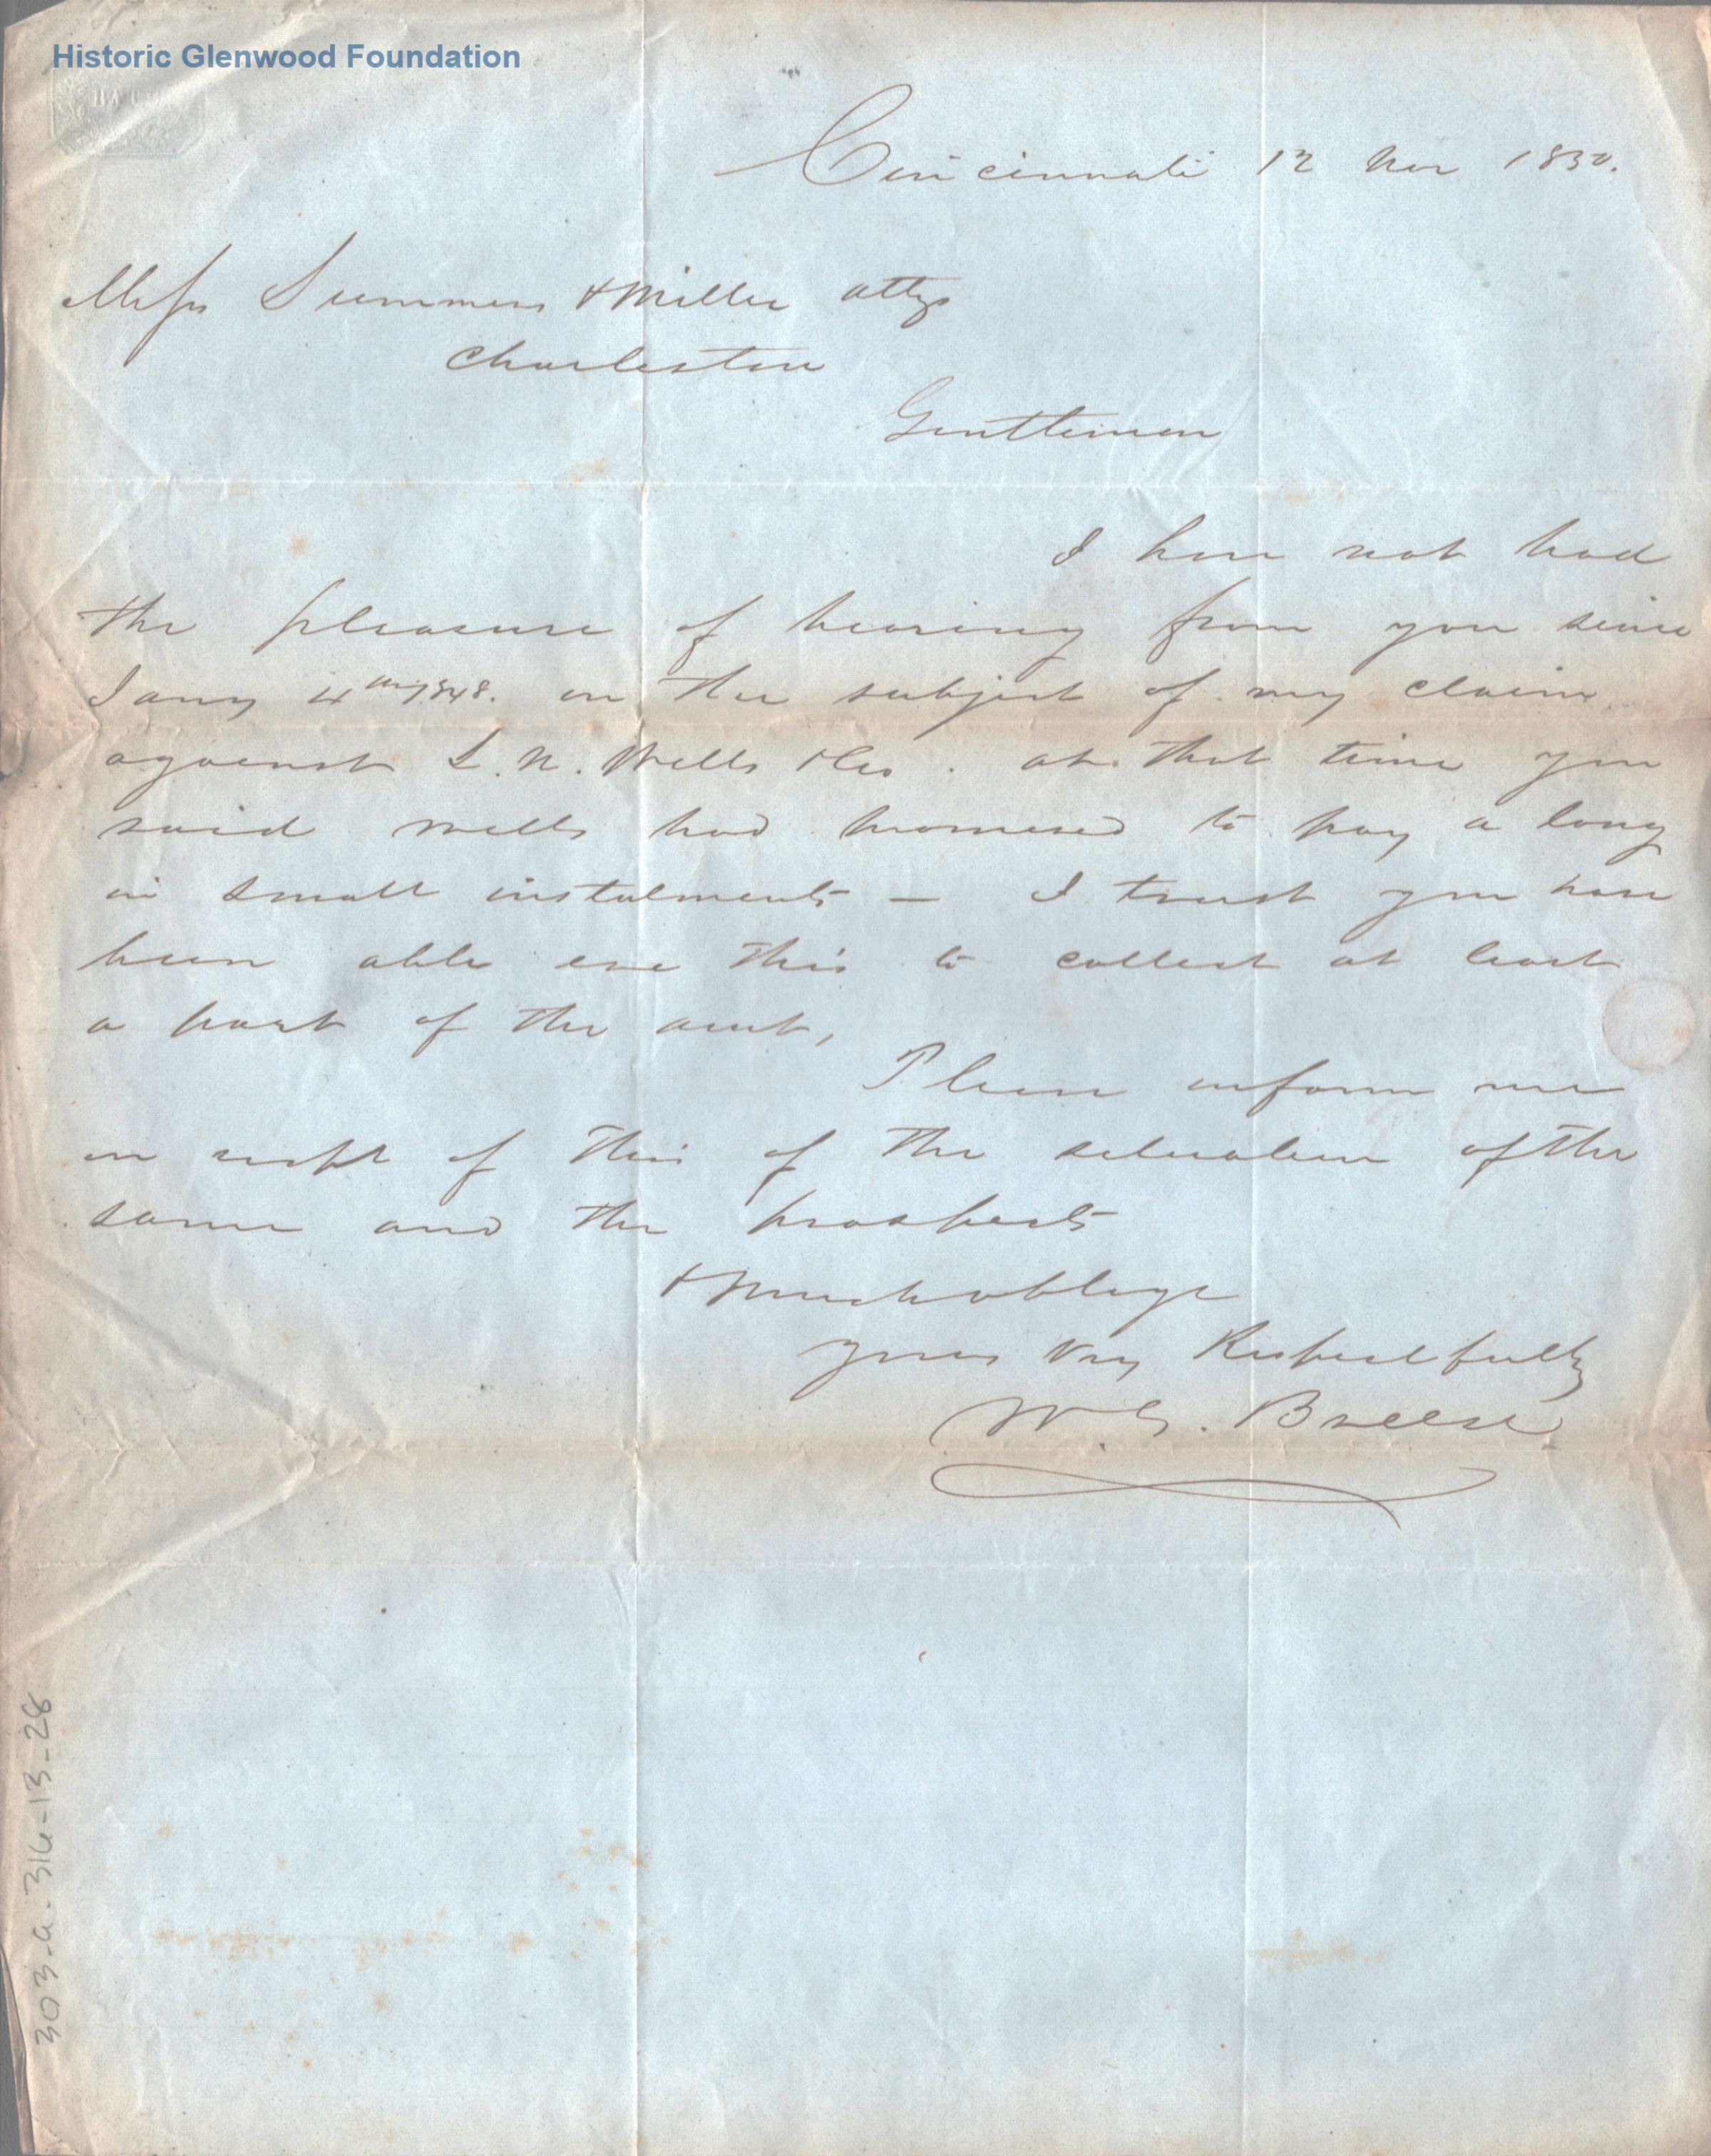 Historic Glenwood Foundation
BATH
Cincinnati 12 Nov 1850.
Messrs Summers & Miller attys
Charleston
Gentlemen
I have not had
the pleasure of hearing from you since
Jany 4th 1848. on the subject of my claim
against L. N. Wells &Co. at that time you
said Wells had promised to pay a long
in small instalments — I trust you have
been able ere this to collect at least
a part of the amt,
Please inform me
on recpt of this of the situation of the
same and the prospects
& much oblige
yours Very Respectfully
W. G. Breese
303-a-316-13-28